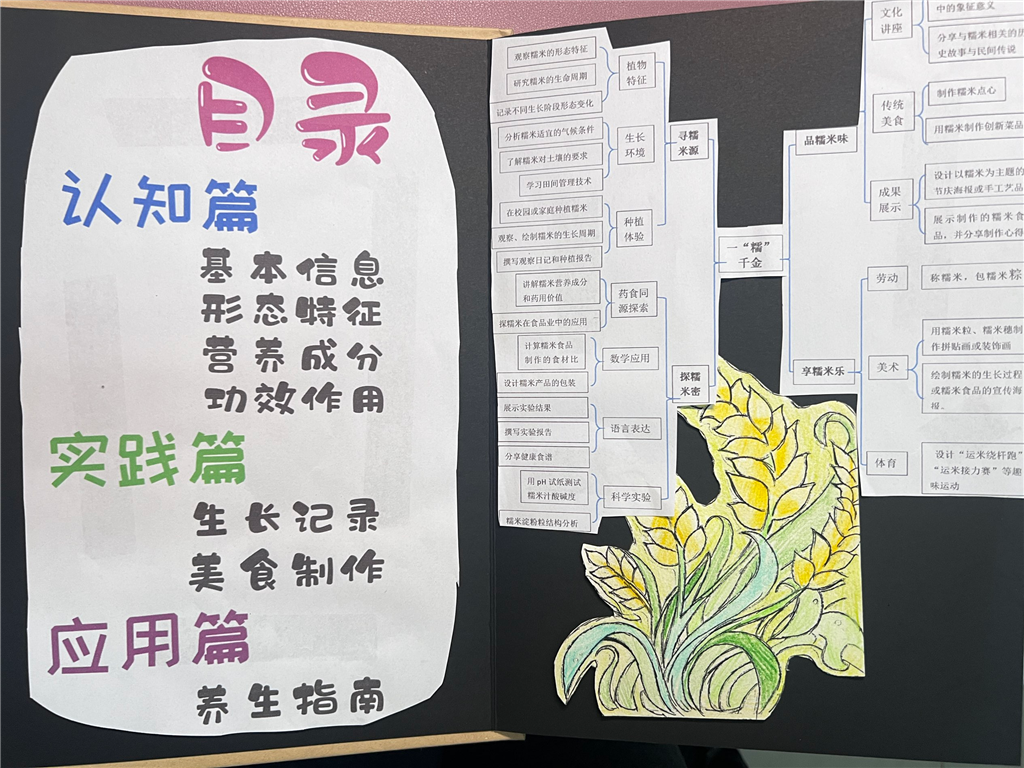 目录
认知篇
基本信息
形态特征
营养成分
功效作用
实践篇
生长记录
美食制作
应用篇
养生指南
观察糯米的形态特征
研究糯米的生命周期
记录不同生长阶段形态变化
植物
特征
分析糯米适宜的气候条件
了解糯米对土壤的要求
学习田间管理技术
生长
环境
在校园或家庭种植糯米
观察、绘制糯米的生长周期
撰写观察日记和种植报告
种植
体验
寻糯
米源
讲解糯米营养成分
和药用价值
探糯米在食品业中的应用
药食同
源探索
计算糯米食品
制作的食材比
设计糯米产品的包装
数学应用
展示实验结果
撰写实验报告
分享健康食谱
语言表达
用 pH 试纸测试
糯米汁酸碱度
糯米淀粉粒结构分析
科学实验
探糯
米密
一“糯”
千金
品糯米味
文化
讲座
中的象征意义
分享与糯米相关的历
史故事与民间传说
传统
美食
制作糯米点心
用糯米制作创新菜品
成果
展示
设计以糯米为主题的
节庆海报或手工艺品
展示制作的糯米食
品，并分享制作心得
享糯米乐
劳动
称糯米，包糯米粽
美术
用糯米粒、糯米穗制
作拼贴画或装饰画
绘制糯米的生长过程
或糯米食品的宣传海
报。
体育
设计“运米绕杆跑”
“运米接力赛”等趣
味运动